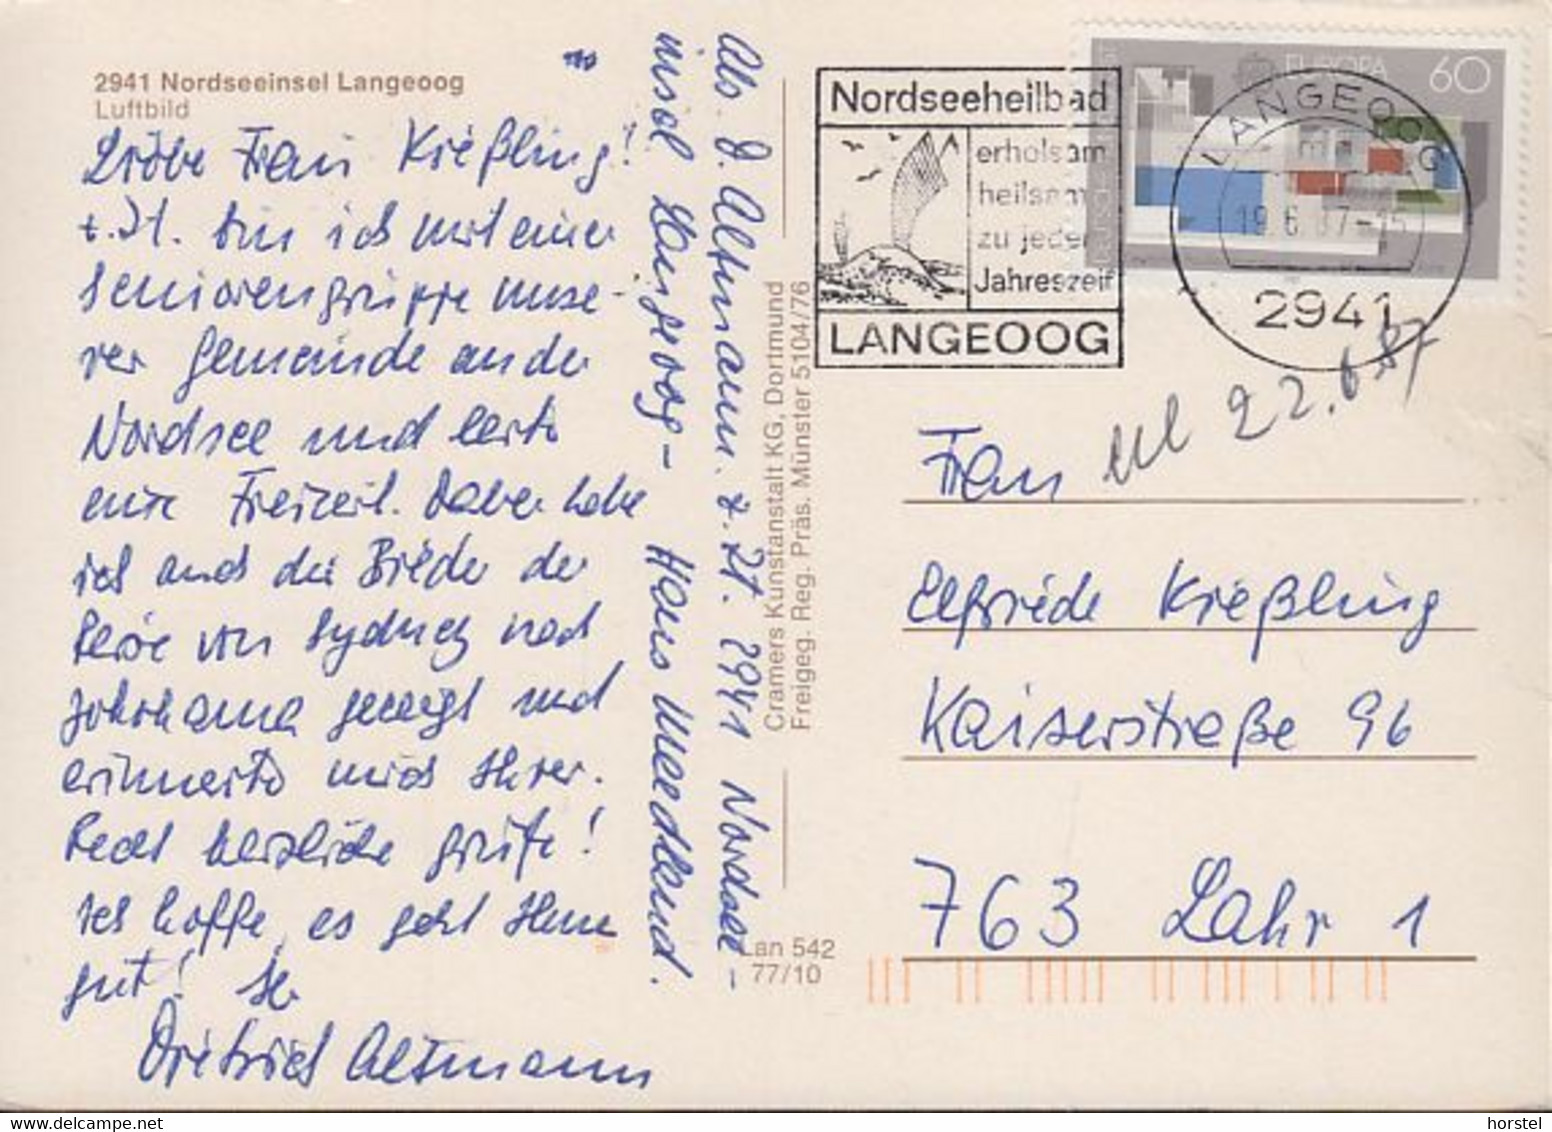 2941 Nordseeinsel Langeoog
Luftbild
Liebe Frau Kießling!
z.Zt. bin ich mit einer
Seniorengruppe unse-
rer Gemeinde an der
Nordsee und leite
eine Freizeit. Dabei habe
ich auch die Bilder der
Reise von Sydney nach
Yokohama gezeigt und
erinnerte mich Ihrer.
Recht herzliche Grüße!
Ich hoffe, es geht Ihnen
gut! Ihr
Dietrich Altmann
Abs. D. Altmann. z. Zt. 2941 Nordsee-
insel Langeoog - Haus Meedland.
Cramers Kunstanstalt KG, Dortmund
Freigeg. Reg. Präs. Münster 5104/76
Lan 542
77/10
Nordseeheilbad
erholsam
heilsam
zu jeder
Jahreszeit
LANGEOOG
EUROPA
60
LANGEOOG
19.6.87-15
2941
22.6.87
Frau
Elfriede Kießling
Kaiserstraße 96
763 Lahr 1
horstel